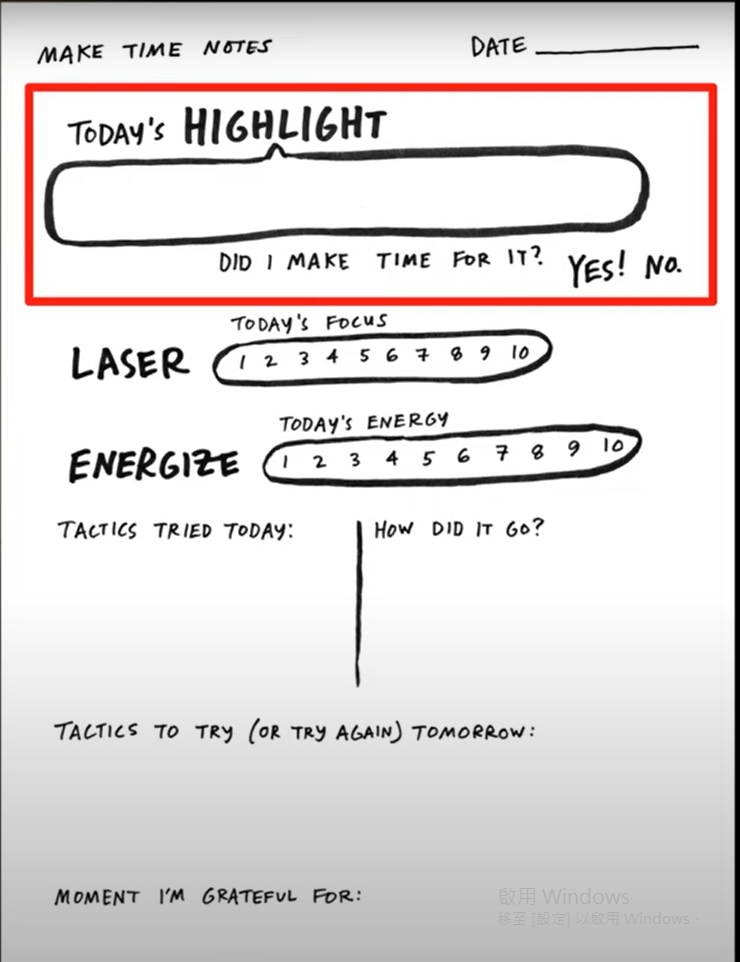 MAKE TIME NOTES DATE
TODAY'S HIGHLIGHT
DID I MAKE TIME FOR IT? YES! NO.
TODAY'S FOCUS
LASER 1 2 3 4 5 6 7 8 9 10
TODAY'S ENERGY
ENERGIZE 1 2 3 4 5 6 7 8 9 10
TACTICS TRIED TODAY: HOW DID IT GO?
TACTICS TO TRY (OR TRY AGAIN) TOMORROW:
MOMENT I'M GRATEFUL FOR:
啟用 Windows
移至 [設定] 以啟用 Windows。